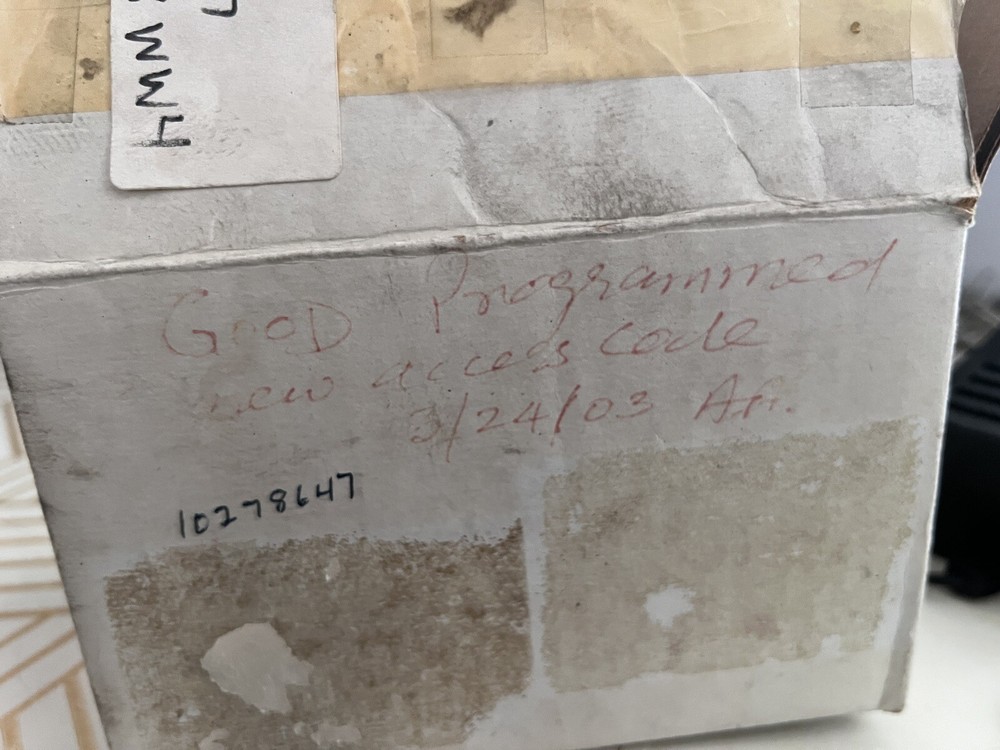 GOOD Programmed
new access code
3/24/03
10278647